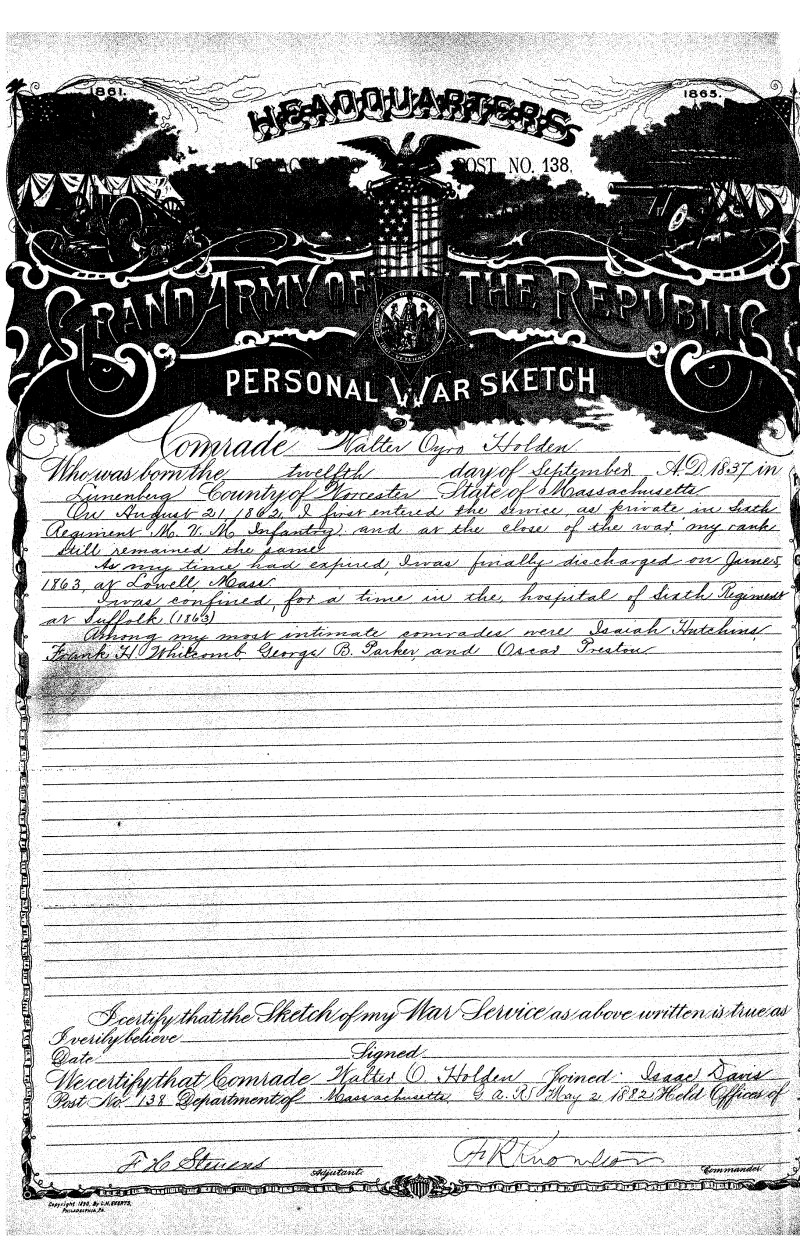 1861.
1865.
HEADQUARTERS
POST NO. 138.
GRAND ARMY OF THE REPUBLIC
VETERAN
PERSONAL WAR SKETCH
Comrade Walter Holden
Who was born the twelfth day of September A.D. 1837 in
Lunenburg County of Worcester State of Massachusetts
On August 21, 1862, I first entered the service, as private in Sixth
Regiment M. V. M. Infantry, and at the close of the war, my rank
still remained the same.
As my time had expired, I was finally discharged on June 5,
1863, at Lowell, Mass.
I was confined, for a time in the, hospital of Sixth Regiment
at Suffolk (1863)
Among my most intimate comrades were Isaiah Hutchins,
Frank H. Whitcomb, George B. Parker, and Oscar Preston.
I certify that the Sketch of my War Service as above written is true as
I verily believe
Date Signed
We certify that Comrade Walter O. Holden Joined Isaac Davis
Post No. 138 Department of Massachusetts G. A. R. May 2 1882 Held Offices of
F H Stevens Adjutant.
Knowlton Commander.
Copyright 1890, By L.H. EVERTS,
PHILADELPHIA, PA.